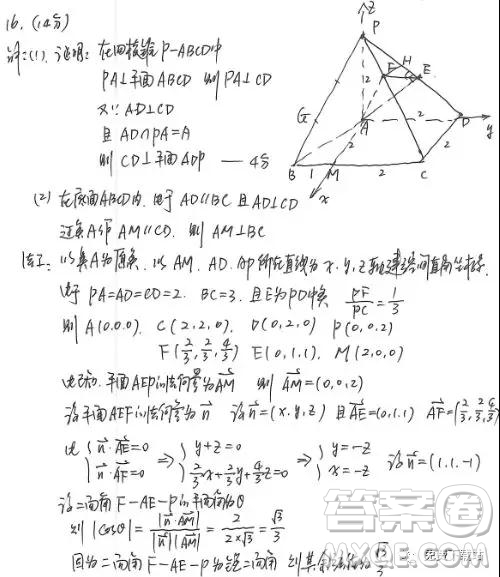 16. (14分)
解:(1). 证明: 在四棱锥P-ABCD中
PA⊥平面ABCD 则PA⊥CD
又∵ AD⊥CD
且 AD∩PA=A
则 CD⊥平面ADP —— 4分
z
P
H
F
E
2
G
A
2
D
y
2
2
B
1
M
2
C
x
(2) 在底面ABCD内, 由于 AD//BC 且 AD⊥CD
过点A作 AM//CD, 则 AM⊥BC
以点A为原点, 以 AM, AD, AP所在直线为x, y, z轴建空间直角坐标系.
由于 PA=AD=CD=2, BC=3, 且E为PD中点 PF/PC=1/3
则 A(0,0,0), C(2,2,0), D(0,2,0) P(0,0,2)
F(2/3,2/3,4/3) E(0,1,1), M(2,0,0)
平面AEP的法向量为AM 则 AM=(0,0,2)
设平面AEF的法向量为n 设n=(x,y,z) 且AE=(0,1,1) AF=(2/3,2/3,4/3)
{n·AE=0 n·AF=0 ⇒ {y+z=0 2/3x+2/3y+4/3z=0 ⇒ {y=-z x=-z 设n=(1,1,-1)
设二面角F-AE-P的平面角为θ
则 |cosθ|=|n·AM|/|n||AM|=2/2×√3=√3/3
因为二面角F-AE-P为锐二面角, 则其余弦值为√3/3
答案圈